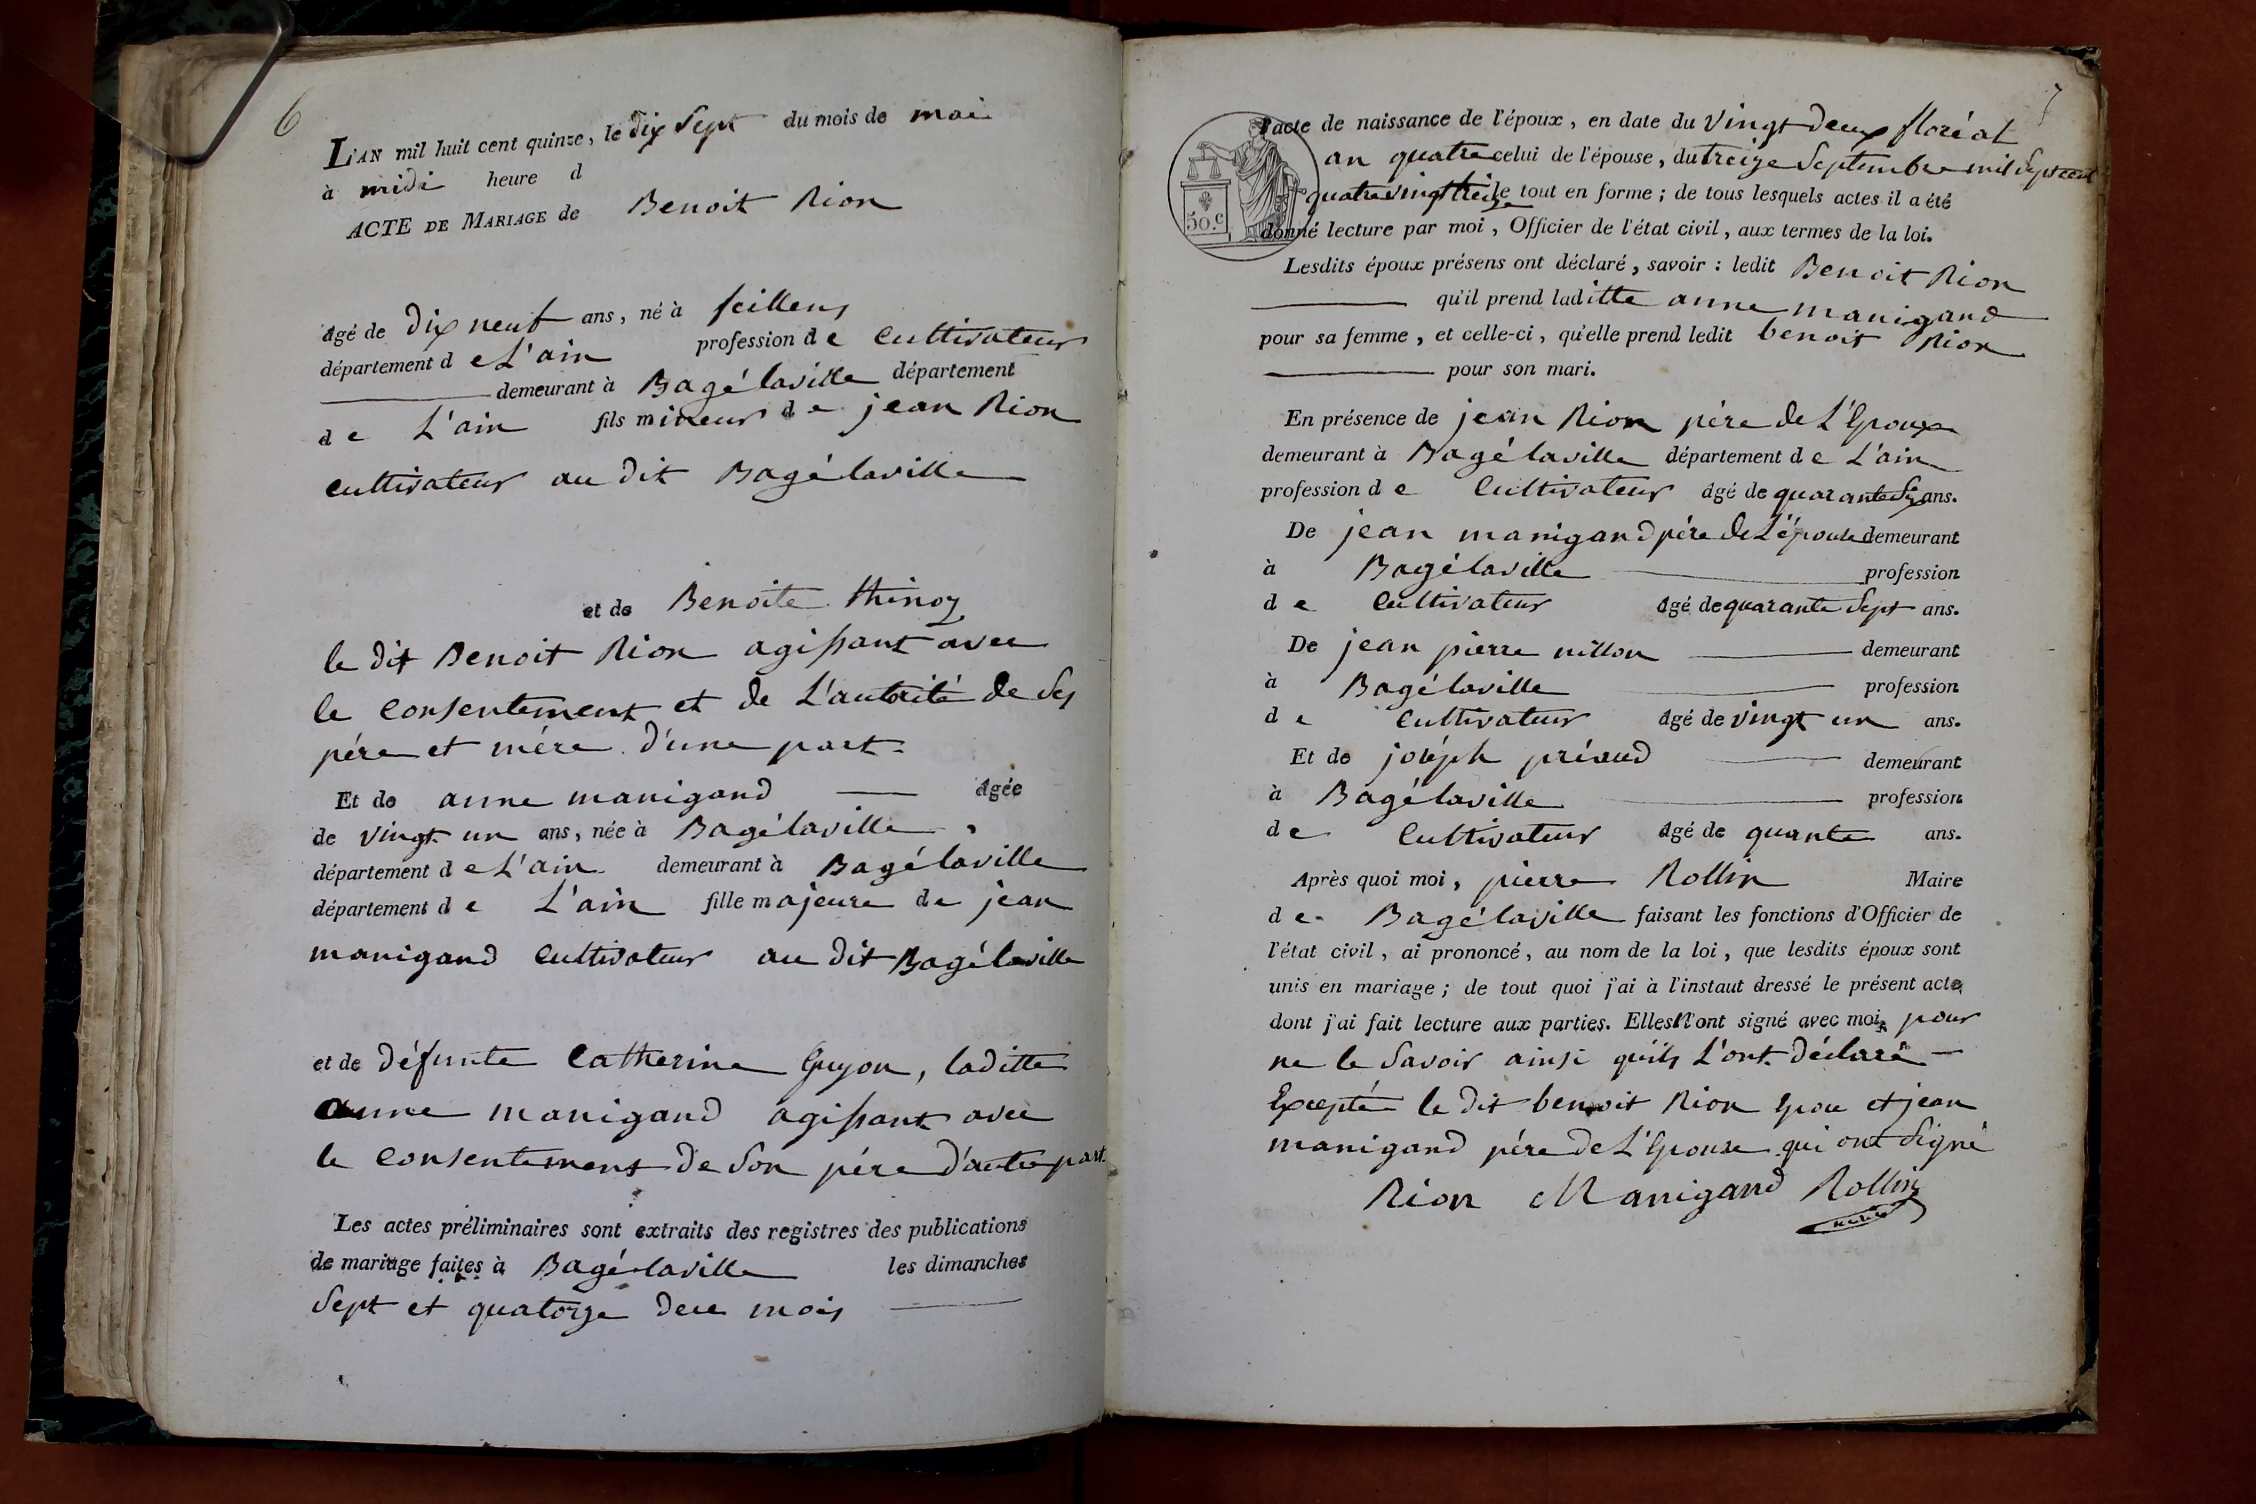 6
L'AN mil huit cent quinze, le dix Sept du mois de mai
à midi heure d
ACTE DE MARIAGE de Benoit Rion
âgé de dix neuf ans, né à feillens
département de L'ain profession de cultivateur
demeurant à Bagélaville département
de L'ain fils mineur de jean Rion
cultivateur au dit Bagélaville
et de Benoite thinoz
le dit Benoit Rion agissant avec
le consentement et de L'autorité de Ses
père et mère d'une part.
Et de anne manigand âgée
de vingt un ans, née à Bagélaville
département de L'ain demeurant à Bagélaville
département de L'ain fille majeure de jean
manigand cultivateur au dit Bagélaville
et de défunte Catherine Guyon, laditte
anne manigand agissant avec
le consentement de Son père d'autre part.
Les actes préliminaires sont extraits des registres des publications
de mariage faites à Bagélaville les dimanches
Sept et quatorze de ce mois
7
l'acte de naissance de l'époux, en date du vingt deux floréal
an quatre celui de l'épouse, du treize Septembre mil Sept cent
quatrevingt treize le tout en forme; de tous lesquels actes il a été
50.c donné lecture par moi, Officier de l'état civil, aux termes de la loi.
Lesdits époux présens ont déclaré, savoir : ledit Benoit Rion
qu'il prend laditte anne manigand
pour sa femme, et celle-ci, qu'elle prend ledit benoit Rion
pour son mari.
En présence de jean Rion père de L'Epoux
demeurant à Bagélaville département de L'ain
profession de Cultivateur âgé de quarante Six ans.
De jean manigand père de L'épouse demeurant
à Bagélaville profession
de Cultivateur âgé de quarante Sept ans.
De jean pierre nillon demeurant
à Bagélaville profession
de Cultivateur âgé de vingt un ans.
Et de joséph préaud demeurant
à Bagélaville profession
de Cultivateur âgé de quante ans.
Après quoi moi, pierre Rollin Maire
de Bagélaville faisant les fonctions d'Officier de
l'état civil, ai prononcé, au nom de la loi, que lesdits époux sont
unis en mariage; de tout quoi j'ai à l'instaut dressé le présent acte
dont j'ai fait lecture aux parties. Elles N'ont signé avec moi, pour
ne le Savoir ainsi qu'ils L'ont déclaré
Excepté le dit benoit Rion Epou et jean
manigand père de L'Epouse qui ont Signé
Rion Manigand Rollin